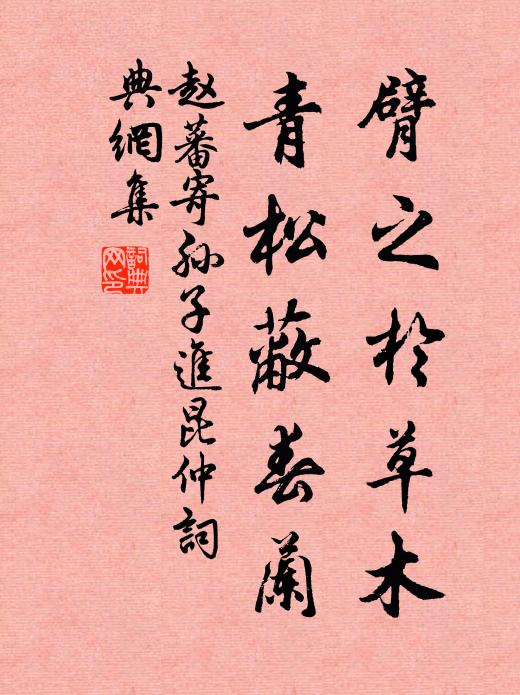 臂之於草木
青松蔽春蘭
赵蕃寄孙子進昆仲詞
典網集
詞典
网印